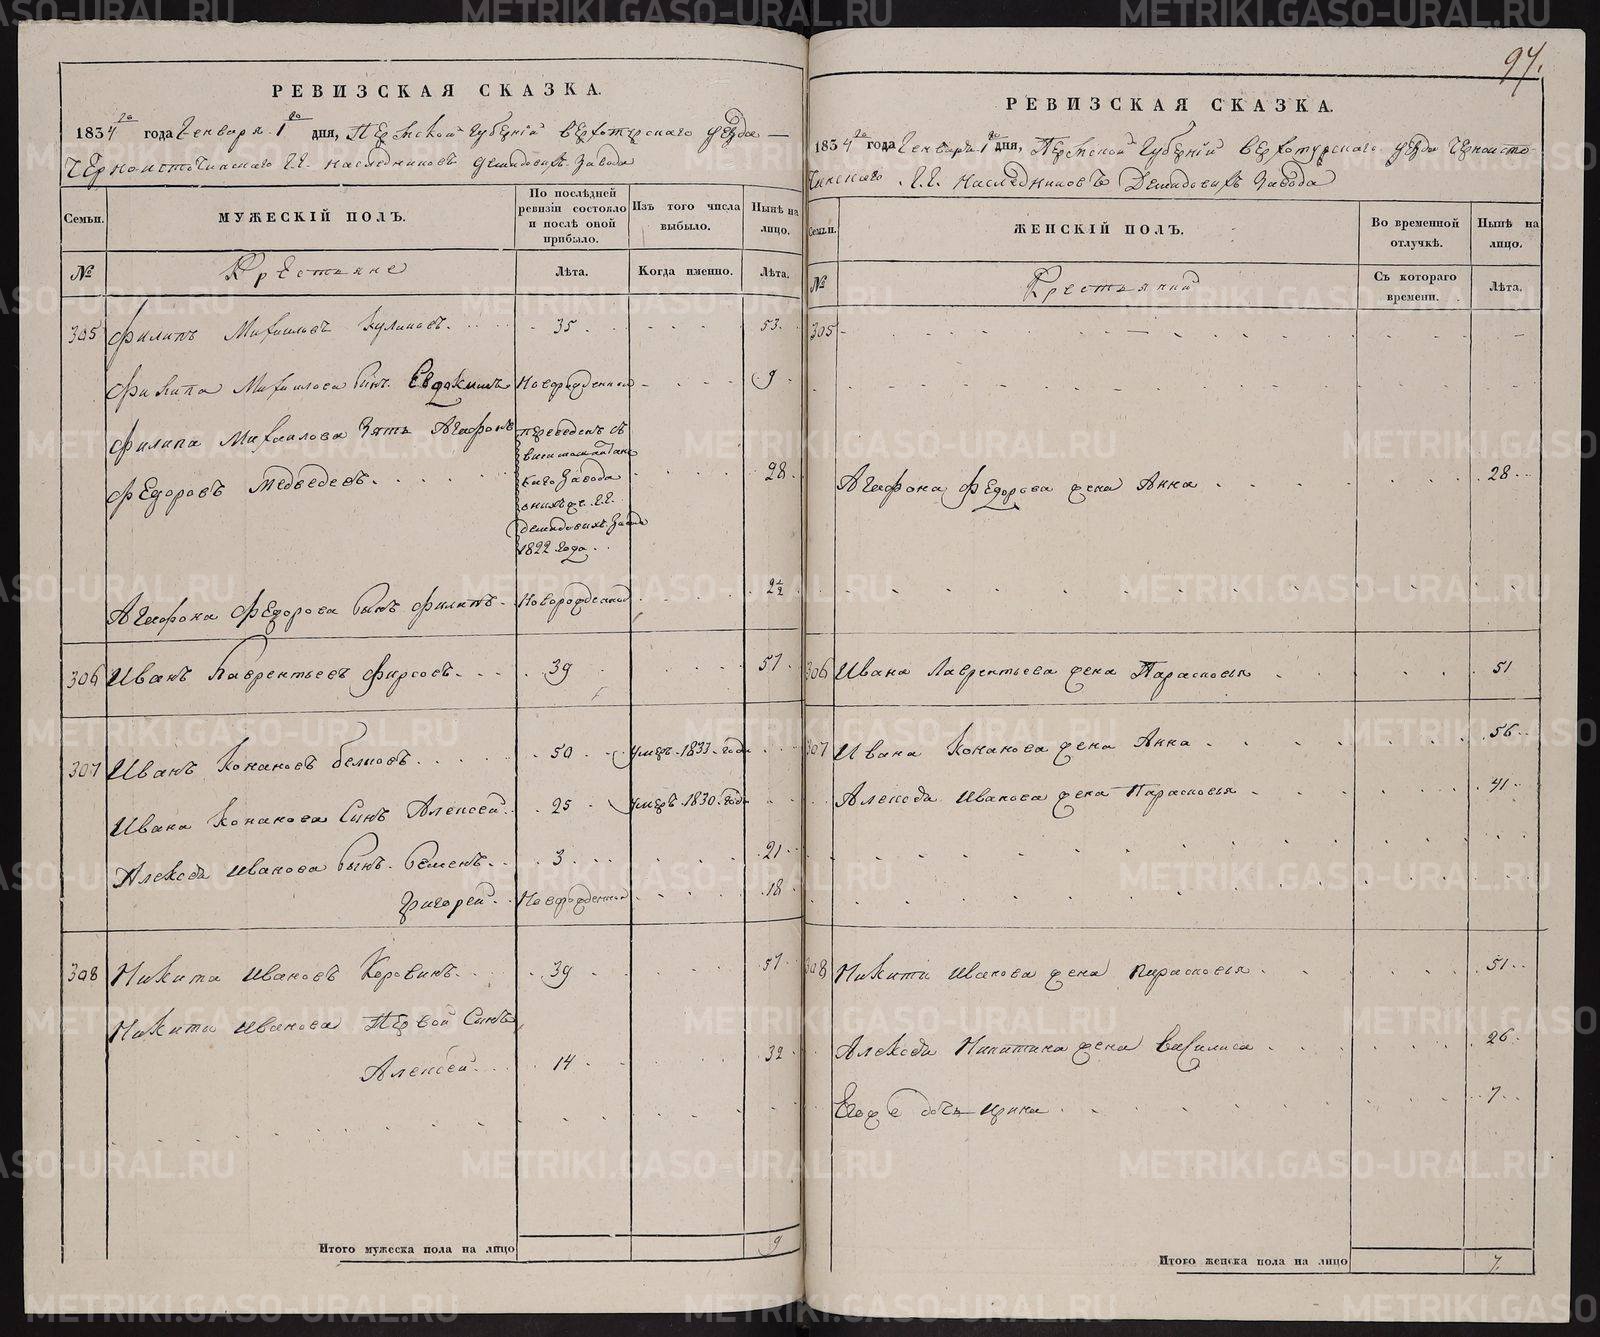 РЕВИЗСКАЯ СКАЗКА.
1834 го года Генваря 1 го дня, Пермской Губерніи Верхотурскаго уезда
Черноисточинскаго Г.Г. наследниковъ Демидовыхъ завода
Семьи. МУЖЕСКІЙ ПОЛЪ. По послѣдней ревизіи состояло и послѣ оной прибыло. Изъ того числа выбыло. Нынѣ на лицо.
№ Крестьяне Лѣта. Когда именно. Лѣта.
305 Филипъ Михаиловъ Куликовъ 35 53
Филипа Михаилова Сынъ Евдокимъ Новорожденной 9
Филипа Михаилова Зять Агафонъ
Федоровъ Медведевъ переведенъ съ
завода
Г.Г.
Демидовыхъ
1822 года 28
Агафона Федорова Сынъ Филипъ Новорожденной 2 1/2
306 Иванъ Лаврентьевъ Фирсовъ 39 57
307 Иванъ Конановъ Белковъ 50 умеръ 1833 года
Ивана Конанова Сынъ Алексей 25 умеръ 1830 года
Алексея Иванова Сынъ Семенъ 3 21
Григорей Новорожденной 18
308 Никита Ивановъ Коровинъ 39 57
Никиты Иванова Первой Сынъ
Алексей 14 32
Итого мужеска пола на лицо 9
94.
РЕВИЗСКАЯ СКАЗКА.
1834 го года Генваря 1 го дня, Пермской Губерніи Верхотурскаго уезда Черноисто-
чинскаго Г.Г. Наследниковъ Демидовыхъ Завода
Семьи. ЖЕНСКІЙ ПОЛЪ. Во временной отлучкѣ. Нынѣ на лицо.
№ Крестьянки Съ котораго времени. Лѣта.
305
Агафона Федорова жена Анна 28
306 Ивана Лаврентьева жена Парасковья 51
307 Ивана Конанова жена Анна 56
Алексея Иванова жена Парасковья 41
308 Никиты Иванова жена Парасковья 51
Алексея Никитина жена Василиса 26
Ево же дочь Ирина 7
Итого женска пола на лицо 7.
METRIKI.GASO-URAL.RU